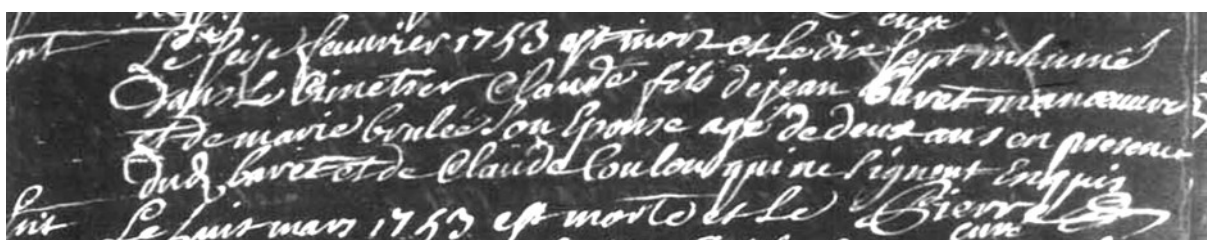 cure
Le seise feuvrier 1753 est mort et le dix sept inhumé
dans le Cimetier Claude fils de jean baret manoeuvre
et de marie brulée son Epouse agé de deux ans en presence
dud. baret et de Claude Coulon qui ne signent Enquis
Le huit mars 1753 est morte et Le Pierre
cure